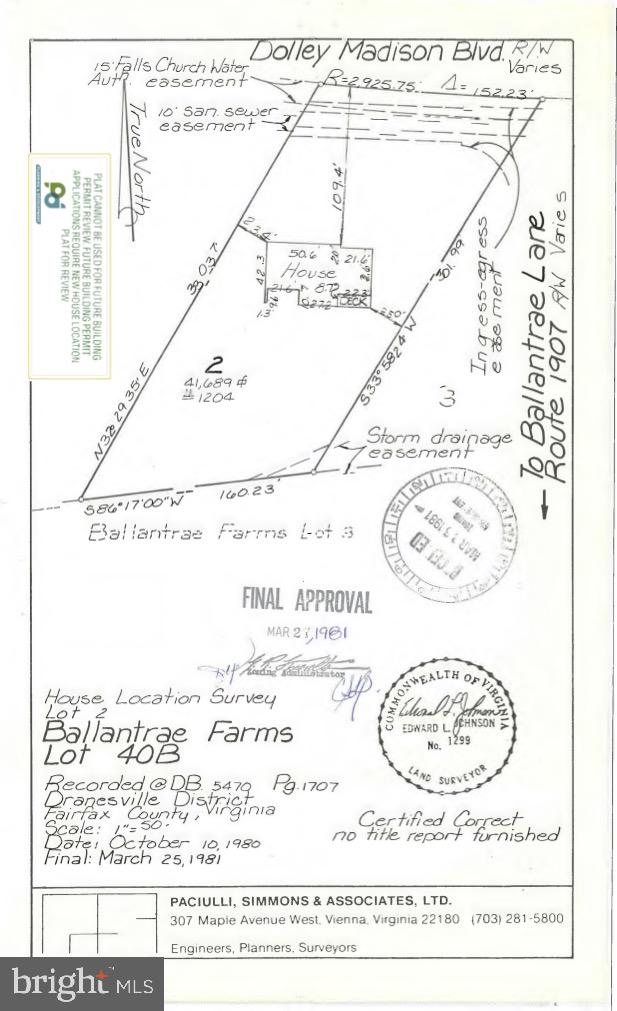 Dolley Madison Blvd. R/W
Varies
15' Falls Church Water
Auth. easement
R=2,925.75'
Δ= 152.23'
10' San. sewer
easement
True North
PLAT CANNOT BE USED FOR FUTURE BUILDING
PERMIT REVIEW. FUTURE BUILDING PERMIT
APPLICATIONS REQUIRE NEW HOUSE LOCATION
PLAT FOR REVIEW
109.4'
23.4'
50.6'
20'
21.6'
House
42.3
21.6
8.7
22.3
27.2
DECK
9.6
1.3'
25.0'
301.99
S33°58'24"W
N32°29'35"E
Ingress-egress
easement
To Ballantrae Lane
Route 1907 R/W Varies
2
41,689
1204
3
Storm drainage
easement
S86°17'00"W
160.23'
Ballantrae Farms Lot 3
MAR 1981
FINAL APPROVAL
MAR 27, 1981
Zoning Administrator
COMMONWEALTH OF VIRGINIA
EDWARD L. JOHNSON
No. 1299
LAND SURVEYOR
House Location Survey
Lot 2
Ballantrae Farms
Lot 40B
Recorded @ DB. 5470 Pg. 1707
Dranesville District
Fairfax County, Virginia
Scale: 1"=50'
Date: October 10, 1980
Final: March 25, 1981
Certified Correct
no title report furnished
PACIULLI, SIMMONS & ASSOCIATES, LTD.
307 Maple Avenue West, Vienna, Virginia 22180 (703) 281-5800
Engineers, Planners, Surveyors
bright MLS